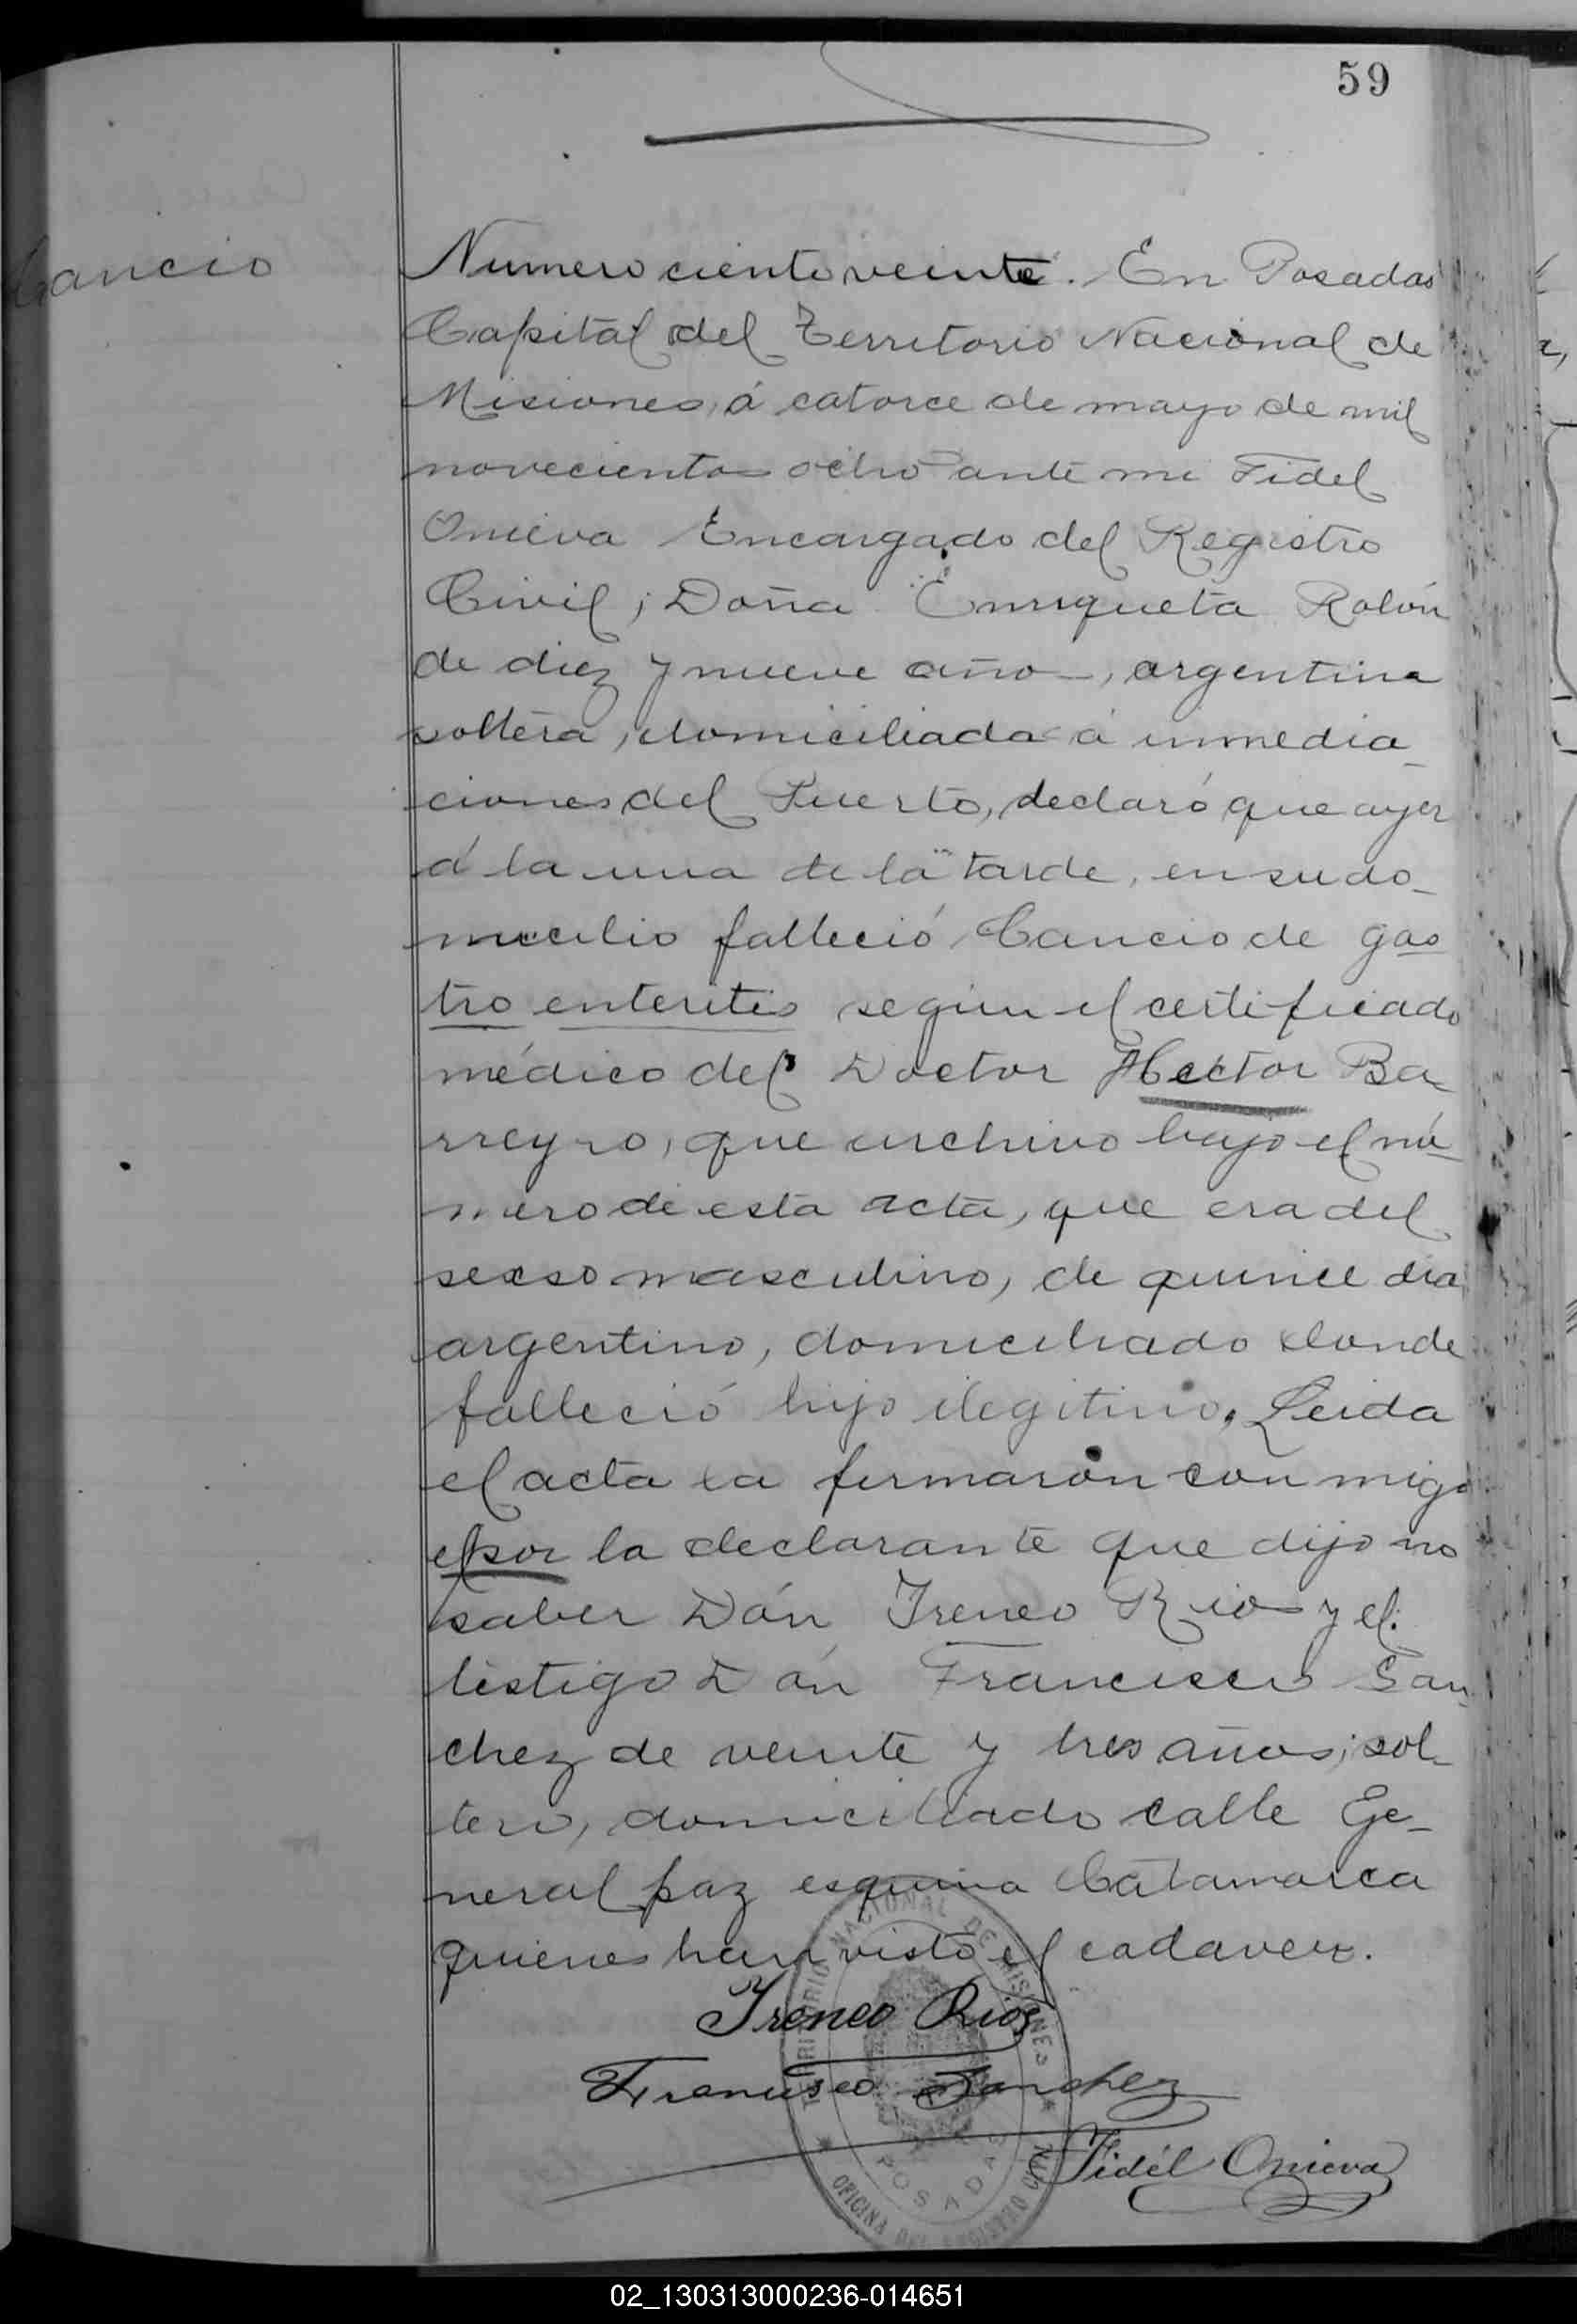 59
Cancio
Numero ciento veinte. En Posadas
Capital del Territorio Nacional de
Misiones, á catorce de mayo de mil
novecientos ocho ante mi Fidel
Onieva Encargado del Registro
Civil; Doña Enriqueta Rolón
de diez y nueve años, argentina
soltera, domiciliada á inmedia-
ciones del Puerto, declaró que ayer
á la una de la tarde, en su do-
micilio falleció Cancio de gas
tro enteritis según el certificado
médico del Doctor Hector Ba-
rreyro, que archivo bajo el nú-
mero de esta acta, que era del
sexso masculino, de quince dia
argentino, domiciliado donde
falleció hijo ilegitimo. Leida
el acta la firmarón con migo
el por la declarante que dijo no
saber Dón Ireneo Rios y el
testigo Dón Francisco San-
chez de veinte y tres años, sol-
tero, domiciliado calle Ge-
neral paz esquina Catamarca
quienes han visto el cadaver.
Ireneo Rios
Francisco Sanchez
Fidél Onieva
TERRITORIO NACIONAL DE MISIONES
OFICINA DEL REGISTRO CIVIL
POSADAS
02_130313000236-014651